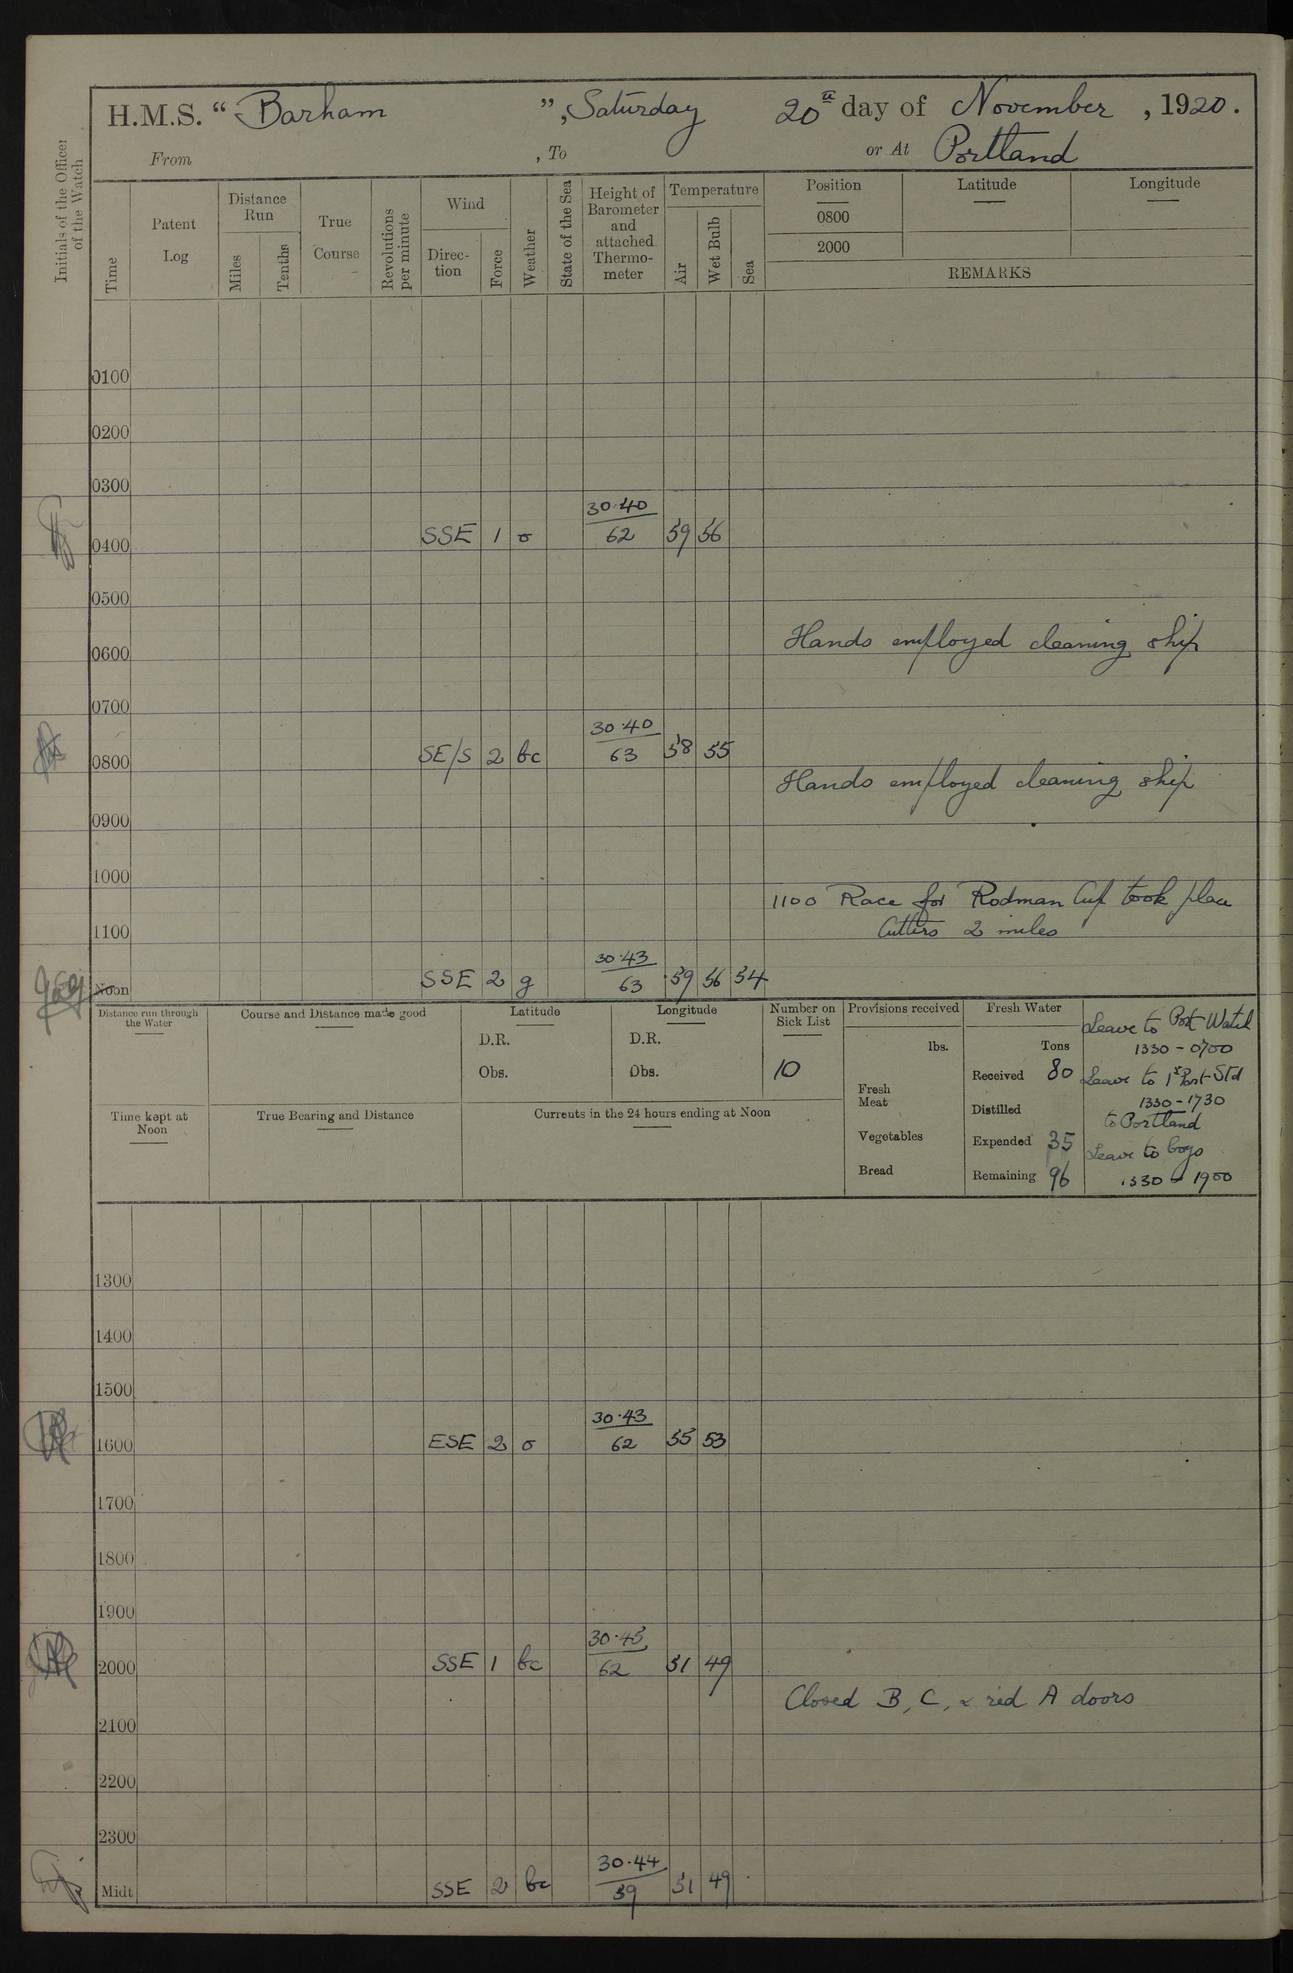 H.M.S. “ Barham ”, Saturday 20th day of November, 1920.
From , To or At Portland
Initials of the Officer of the Watch
Time
Patent Log
Distance Run
Miles
Tenths
True Course
Revolutions per minute
Wind
Direc-tion
Force
Weather
State of the Sea
Height of Barometer and attached Thermo-meter
Temperature
Air
Wet Bulb
Sea
Position
Latitude
Longitude
0800
2000
REMARKS
0100
0200
0300
30.40
0400 SSE 1 o 62 59 56
0500
Hands employed cleaning ship
0600
0700
30.40
0800 SE/S 2 bc 63 58 55
Hands employed cleaning ship
0900
1000
1100 Race for Rodman Cup took place
Cutters 2 miles
1100
30.43
Noon SSE 2 g 63 59 56 54
Distance run through the Water
Course and Distance made good
Latitude
D.R.
Obs.
Longitude
D.R.
Obs.
Number on Sick List
10
Provisions received
lbs.
Fresh Meat
Vegetables
Bread
Fresh Water
Tons
Received 80
Distilled
Expended 35
Remaining 96
Leave to Port Watch
1330 - 0700
Leave to 1st Part Stbd
1330 - 1730
to Portland
Leave to boys
1330 - 1900
Time kept at Noon
True Bearing and Distance
Currents in the 24 hours ending at Noon
1300
1400
1500
30.43
1600 ESE 2 o 62 55 53
1700
1800
1900
30.45
2000 SSE 1 bc 62 51 49
Closed B, C, & red A doors
2100
2200
2300
30.44
Midt SSE 2 bc 59 51 49